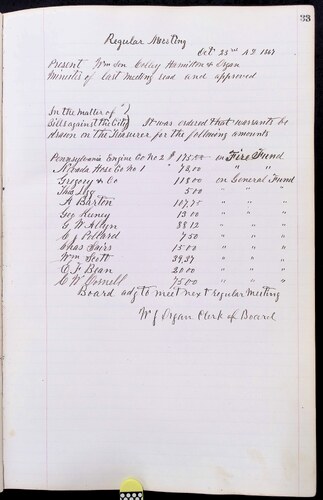 33
Regular Meeting
Oct 23rd A.D. 1867
Present Wmson Colley Hamilton & Organ
Minutes of last meeting read and approved
In the matter of
Bills against the City) It was ordered that warrants be
drawn on the Treasurer for the following amounts
Pennsylvania Engine Co No 2 $ 175.00 on Fire Fund
Nevada Hose Co No 1 " 72,00 " " "
Gregory & Co 118.00 on General Fund
Thos 5.00 " " "
A Barton 107,75 " " "
Geo Keeney 12.00 " " "
G W 38.12 " " "
C J Pollard 7.50 " " "
Chas 15.00 " " "
Wm Scott 39,37 " " "
C. F Bean 20.10 " " "
C W Cornell 75.00 " " "
Board adj to meet next regular meeting
W J Organ Clerk of Board